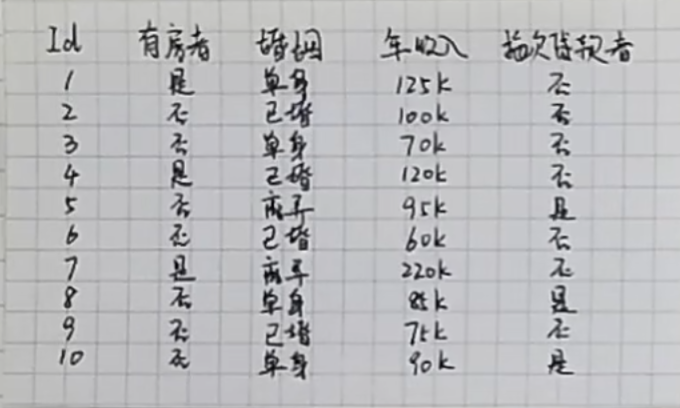 Id 有房者 婚姻 年收入 拖欠贷款者
1 是 单身 125k 否
2 否 已婚 100k 否
3 否 单身 70k 否
4 是 已婚 120k 否
5 否 离异 95k 是
6 否 已婚 60k 否
7 是 离异 220k 否
8 否 单身 85k 是
9 否 已婚 75k 否
10 否 单身 90k 是